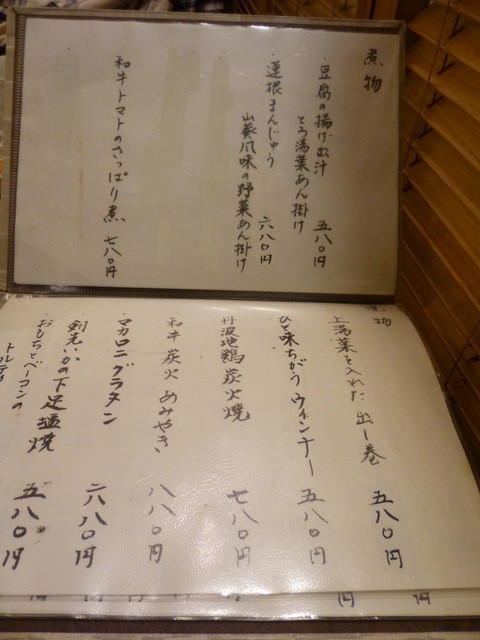 煮物
・豆腐の揚げ出汁
とろ湯葉あん掛け 五八〇円
・蓮根まんじゅう
山葵風味の野菜あん掛け 六八〇円
・和牛トマトのさっぱり煮 七八〇円
物
上湯葉を入れた出し巻 五八〇円
ひと味ちがうウィンナー 五八〇円
丹波地鶏炭火焼 七八〇円
和牛炭火あみやき 八八〇円
マカロニグラタン 六八〇円
剣先いかの下足塩焼 五八〇円
おもちとベーコンの